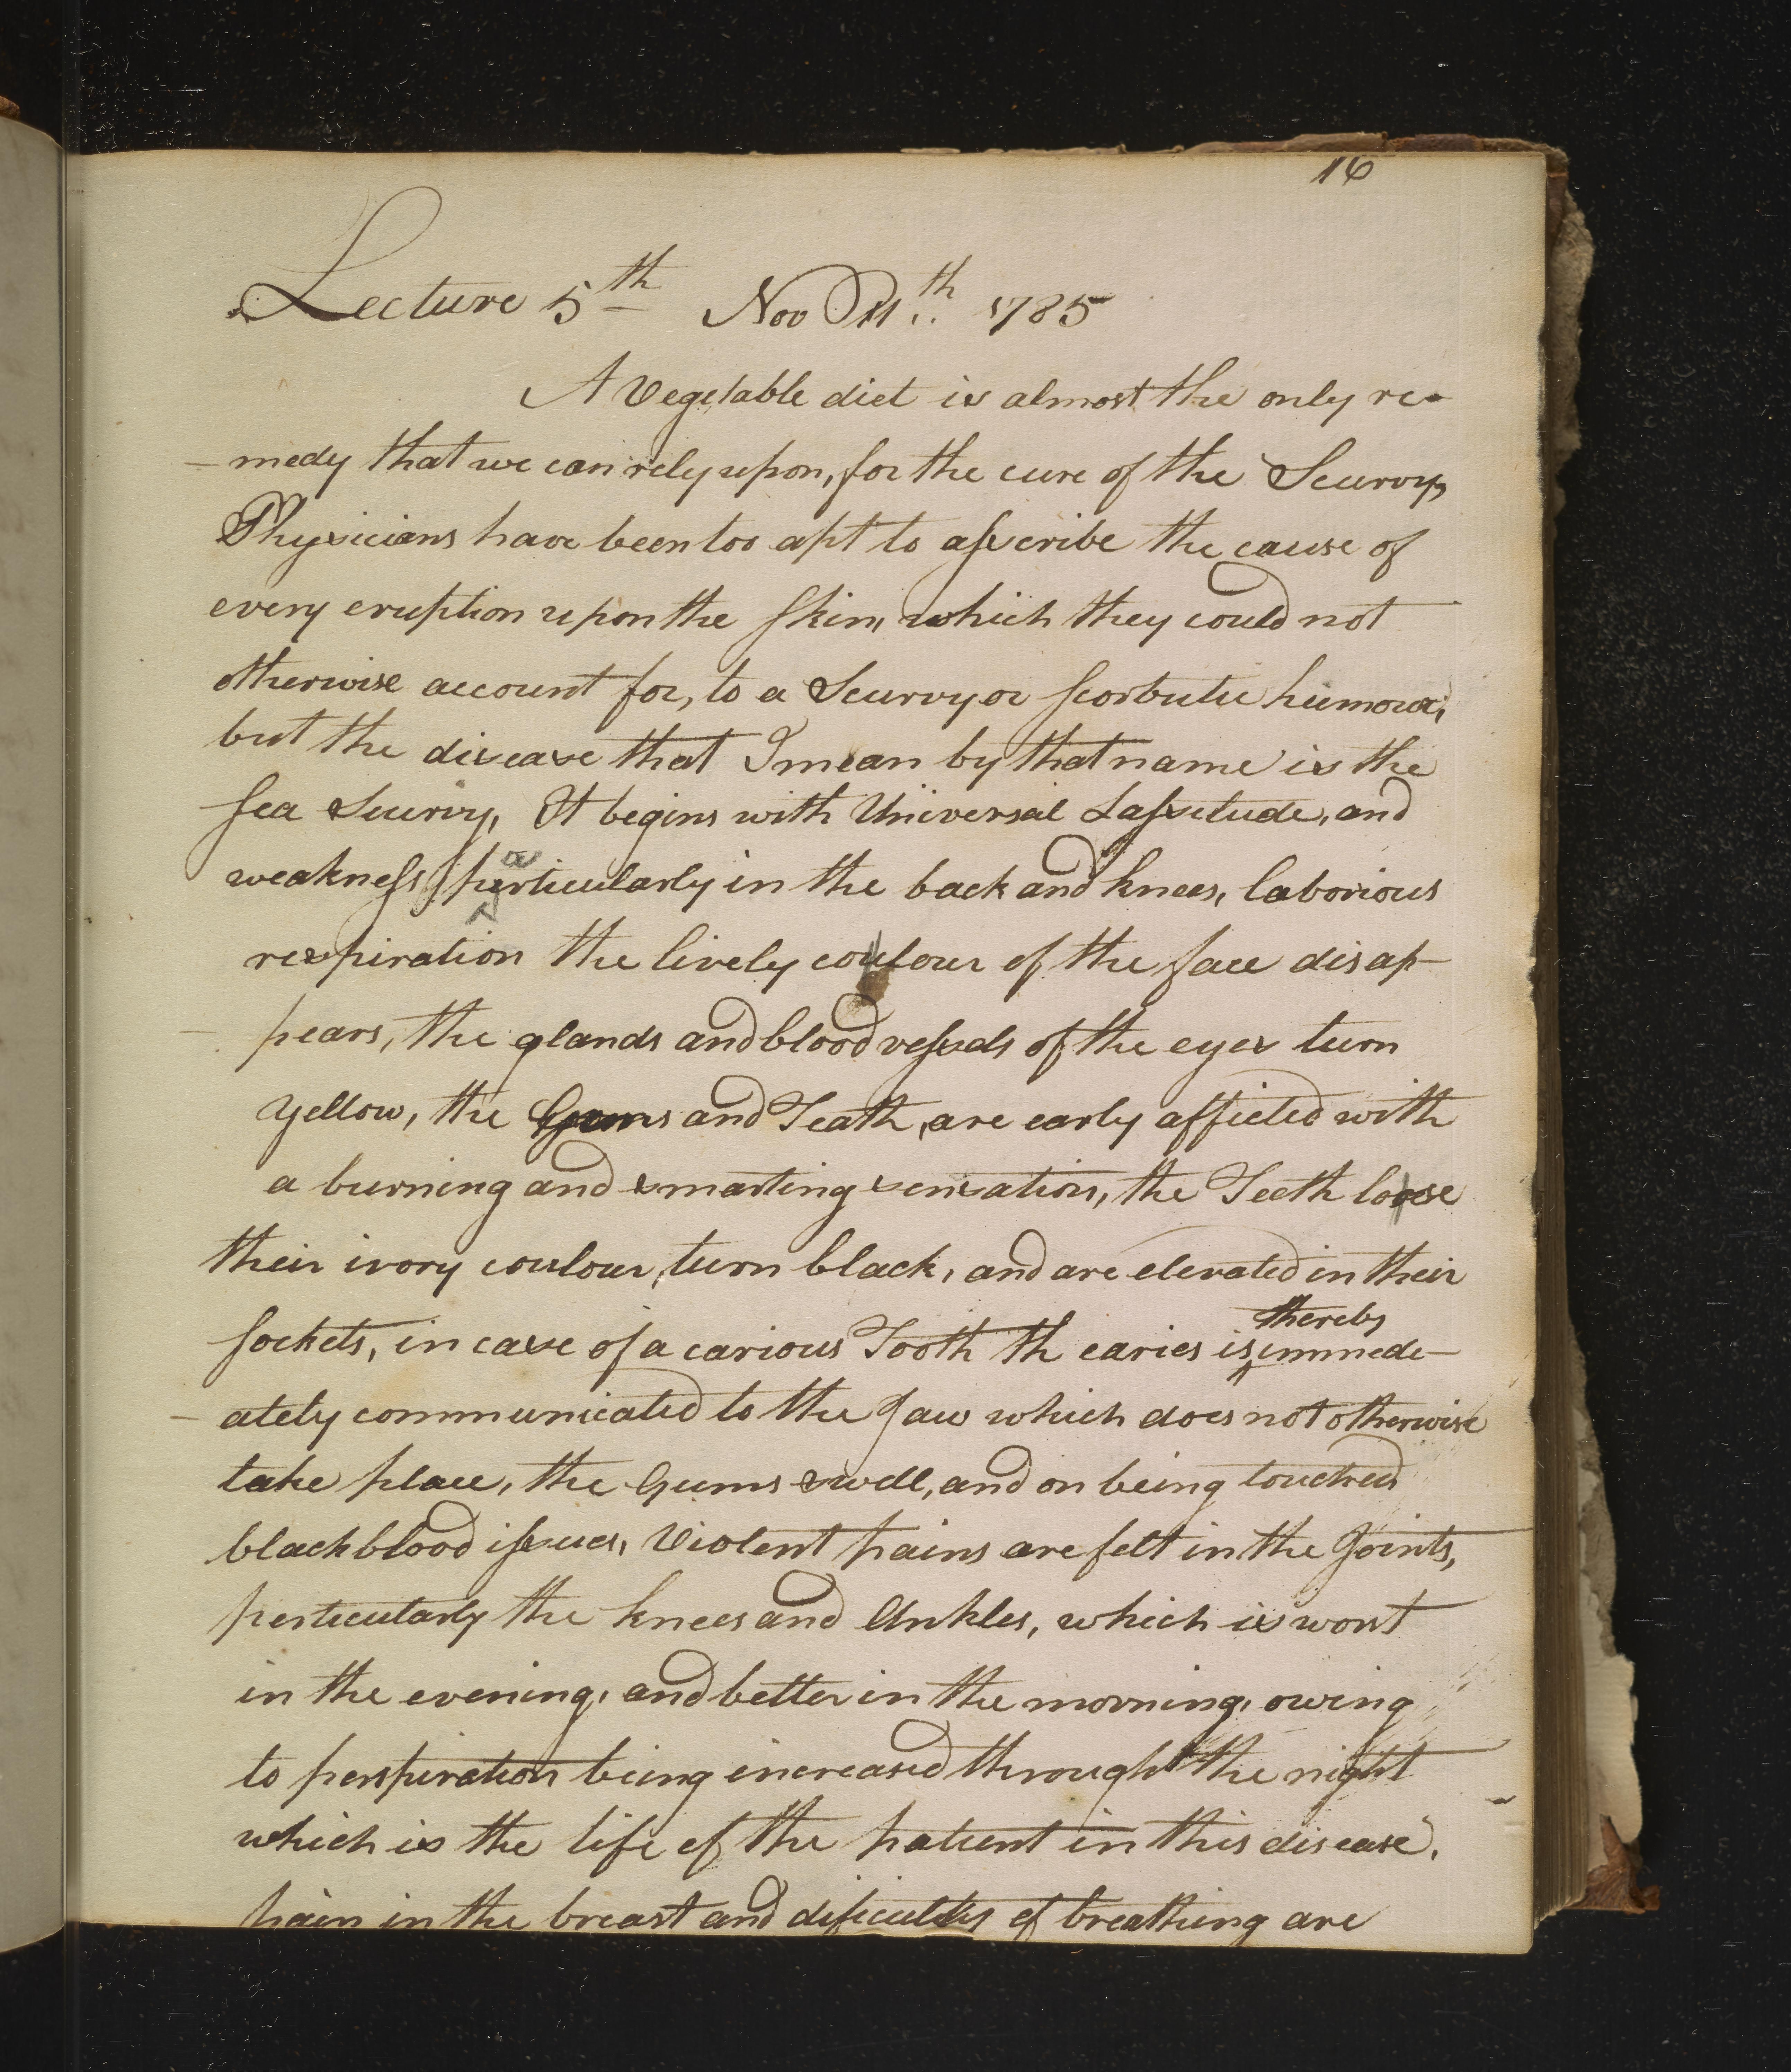 16
Lecture 5th Nov 11th 1785
A Vegetable diet is almost the only re-
-medy that we can rely upon, for the cure of the Scurvy,
Physicians have been too apt to asscribe the cause of
every eruption upon the skin, which they could not
otherwise account for, to a Scurvy or scorbutic humour,
but the disease that I mean by that name is the
sea Scurvy, It begins with Universal Lassitude, and
weakness, particularly in the back and knees, laborious
respiration the lively coulour of the face disap-
pears, the glands and blood vessels of the eyes turn
yellow, the Gums and Teath, are early afficted with
a burning and smarting sensation, the Teeth loose
their ivory coulour, turn black, and are elevated in their
sockets, in case of a carious Tooth th caries is thereby immede-
-ately communicated to the Jaw which does not otherwise
take place, the Gums swell, and on being touched
black blood issues, Violent pains are felt in the Joints,
perticularly the knees and Ankles, which is worst
in the evening, and better in the morning, owing
to perspiration being increased through the night
which is the life of the patient in this disease,
pain in the breast and dificultys of breathing are